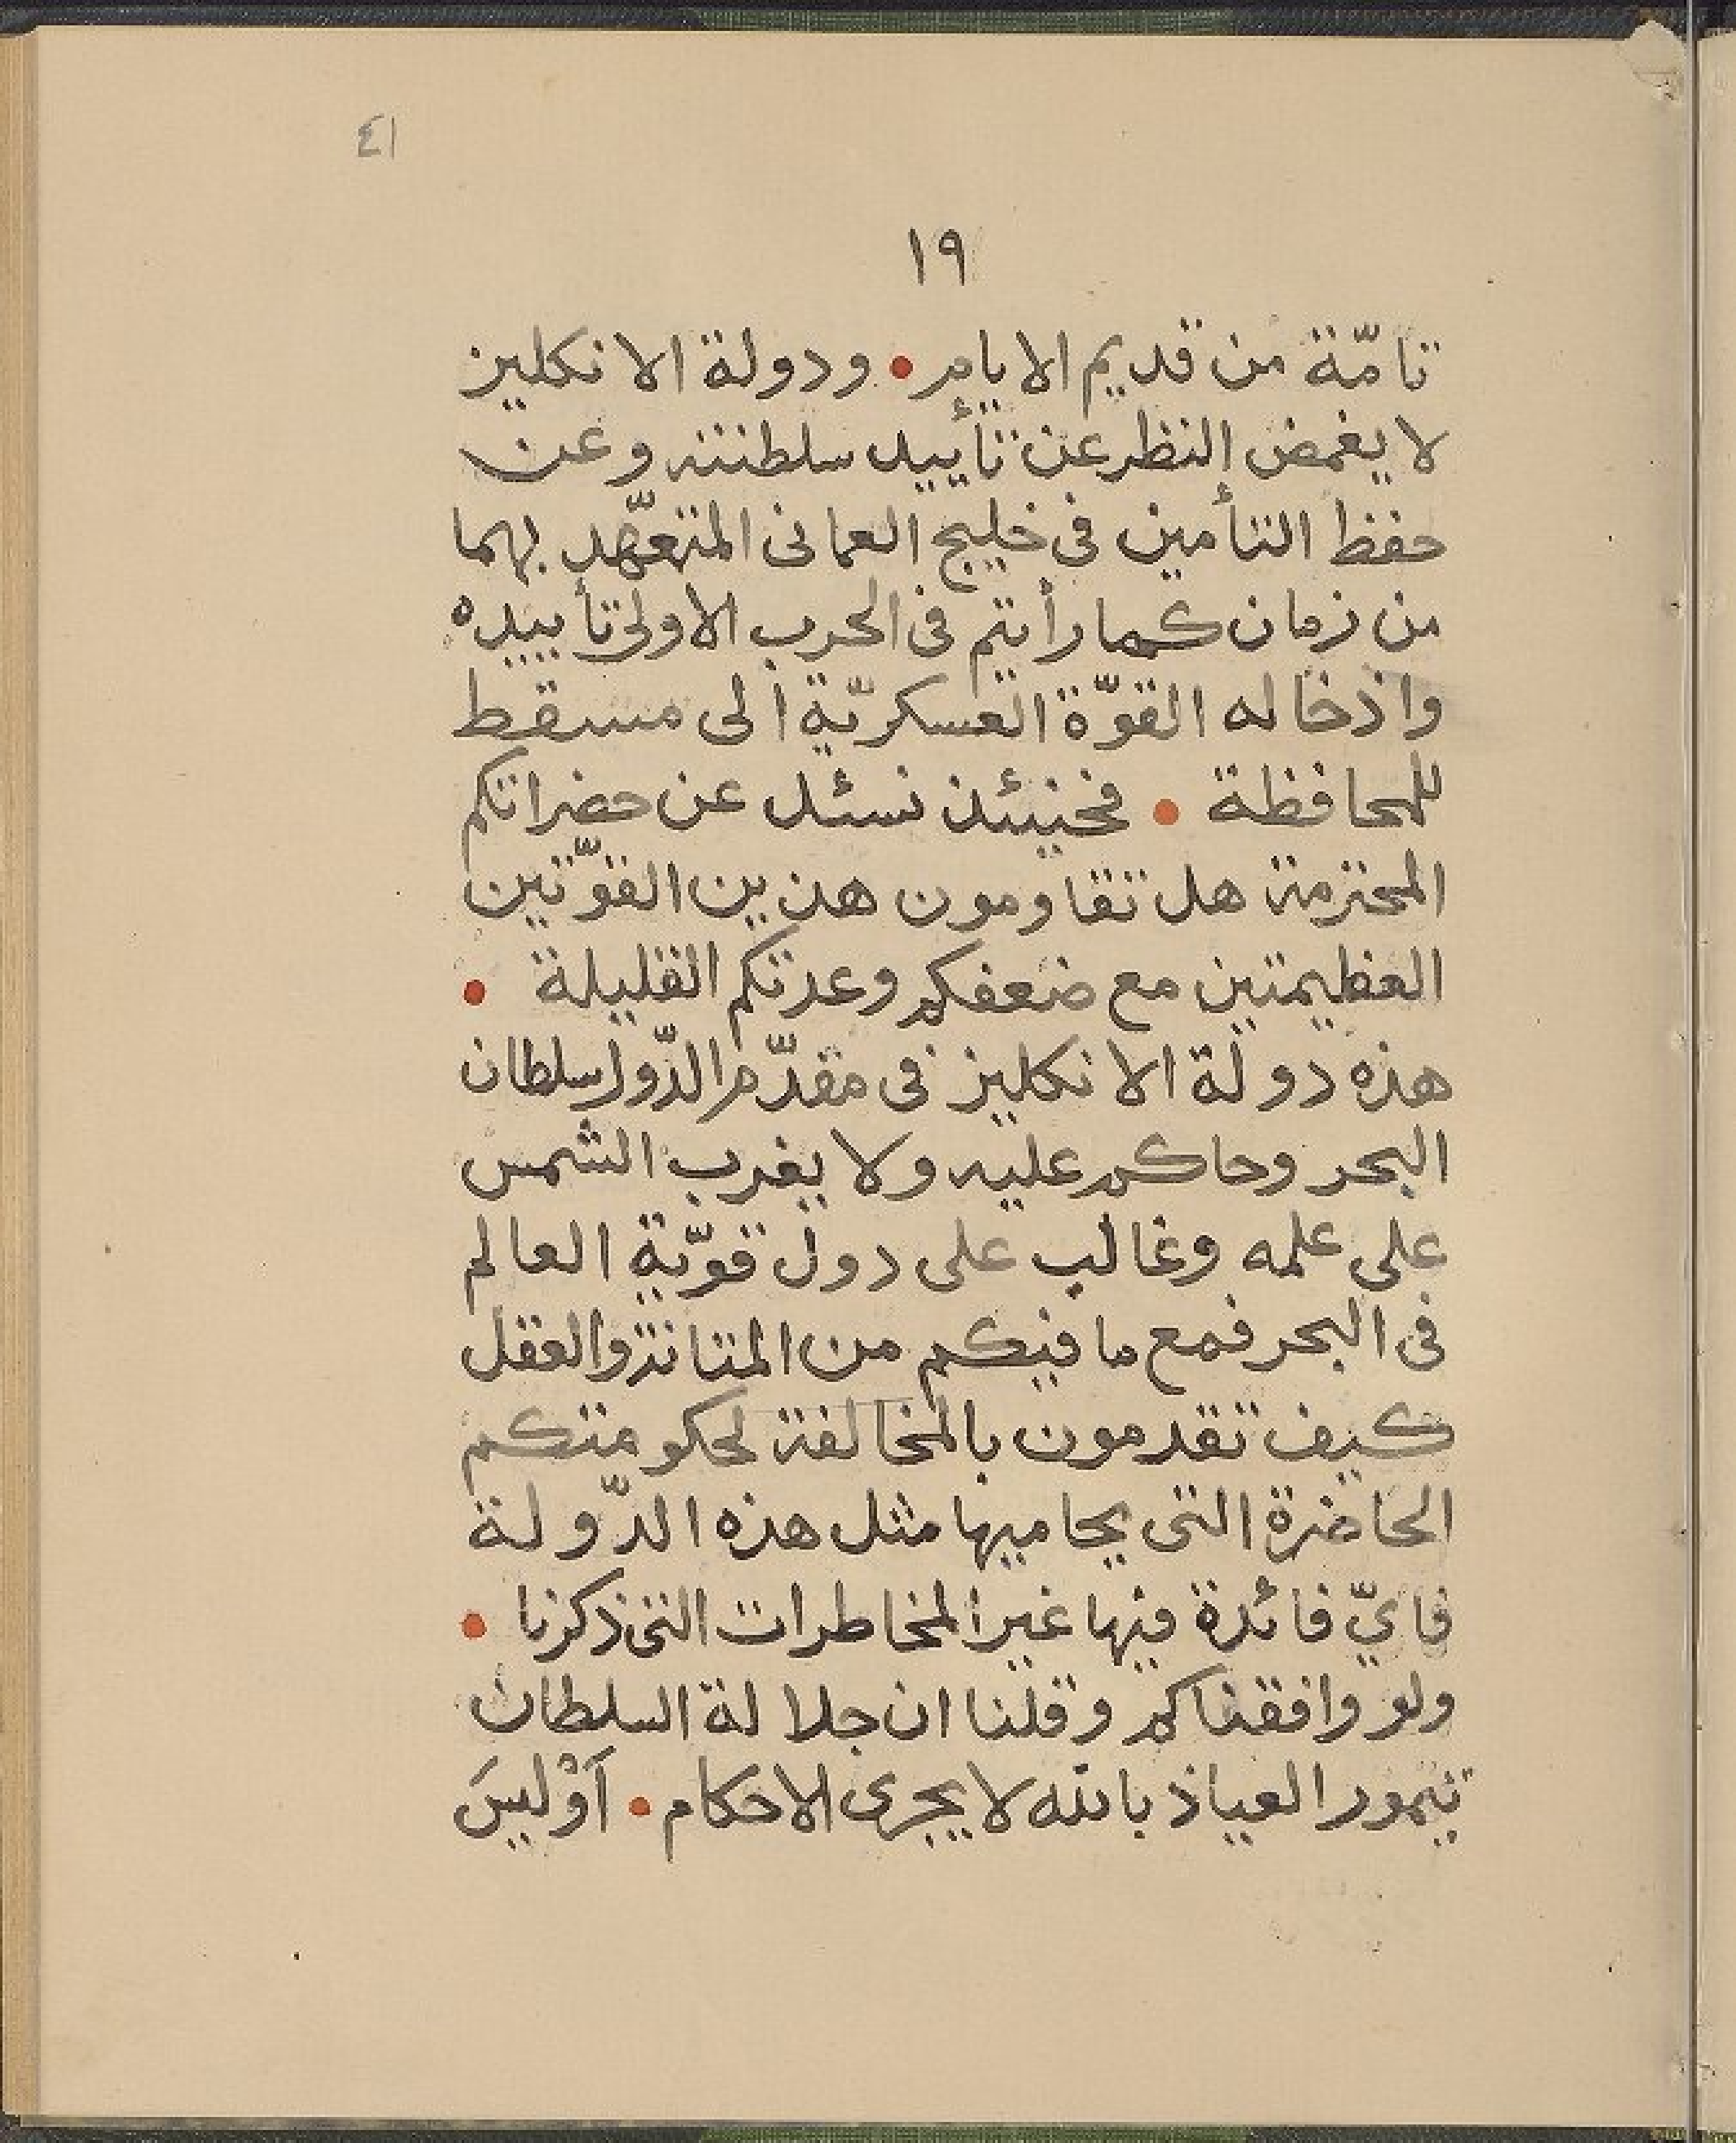 ٤١
١٩
تامّة من قديم الايام • ودولة الانكليز
لا يغمض النظر عن تأييد سلطنته وعن
حفظ التأمين فى خليج العمانى المتعهّد بهما
من زمان كما رأيتم فى الحرب الاولى تأييده
واذخاله القوّة العسكريّة الى مسقط
للمحافظة • فحينئذ نسئل عن حضراتكم
المحترمة هل تقاومون هذين القوّتين
العظيمتين مع ضعفكم وعدتكم القليلة •
هذه دولة الانكليز فى مقدّم الدّول سلطان
البحر وحاكم عليه ولا يغرب الشمس
على علمه وغالب على دول قويّة العالم
فى البحر فمع ما فيكم من المتانة والعقل
كيف تقدمون بالمخالفة لحكومتكم
الحاضرة التى يحاميها مثل هذه الدّولة
فايّ فائدة فيها غير المخاطرات التى ذكرنا •
ولو وافقناكم وقلنا ان جلالة السلطان
تيمور العياذ بالله لا يجرى الاحكام • اَوْليسَ